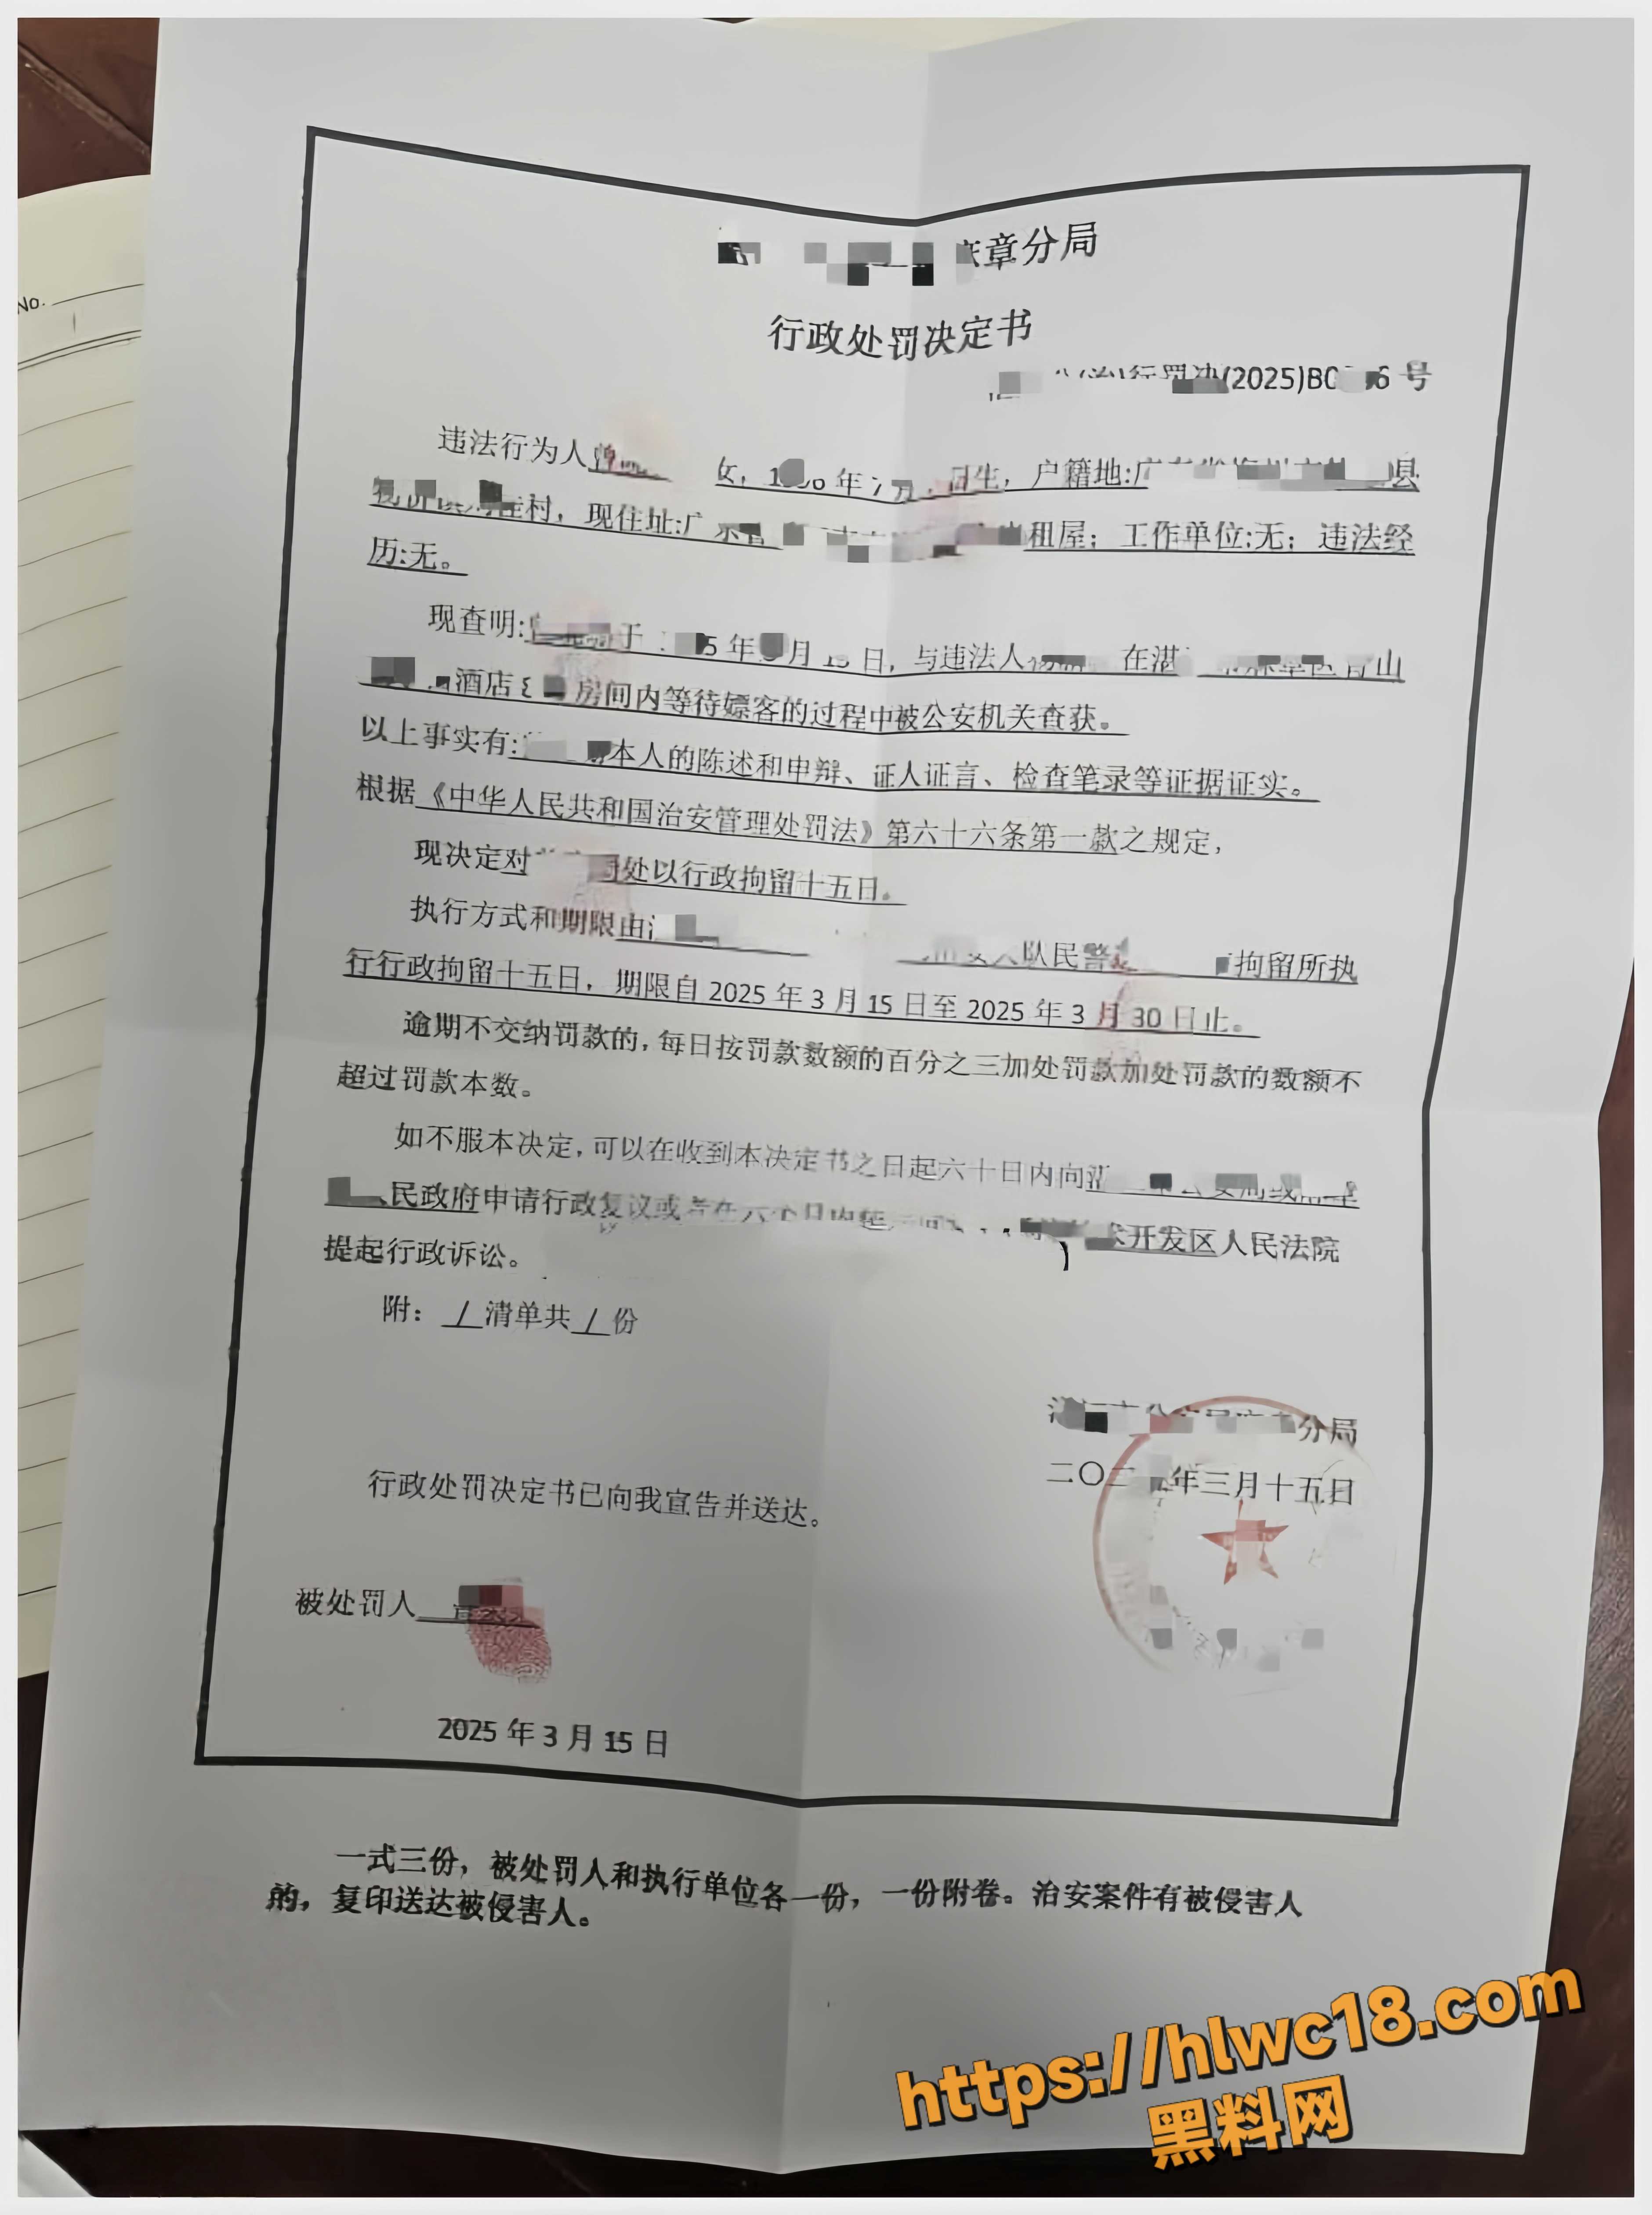 No.
章分局
行政处罚决定书
行罚决(2025)B0 6 号
违法行为人 女, 年7月 日生, 户籍地: 县
村, 现住址:广 租屋; 工作单位:无; 违法经
历:无。
现查明: 于 5 年 月 日, 与违法人 在湛 山
酒店 房间内等待嫖客的过程中被公安机关查获。
以上事实有: 本人的陈述和申辩、证人证言、检查笔录等证据证实。
根据《中华人民共和国治安管理处罚法》第六十六条第一款之规定,
现决定对 处以行政拘留十五日。
执行方式和期限由 队民警 拘留所执
行行政拘留十五日, 期限自 2025 年 3 月 15 日至 2025 年 3 月 30 日止。
逾期不交纳罚款的, 每日按罚款数额的百分之三加处罚款加处罚款的数额不
超过罚款本数。
如不服本决定, 可以在收到本决定书之日起六十日内向
民政府申请行政复议或 在六个月内 开发区人民法院
提起行政诉讼。
附: / 清单共 / 份
分局
二〇 年三月十五日
行政处罚决定书已向我宣告并送达。
被处罚人
2025 年 3 月 15 日
一式三份, 被处罚人和执行单位各一份, 一份附卷。治安案件有被侵害人
的, 复印送达被侵害人。
https://hlwc18.com
黑料网